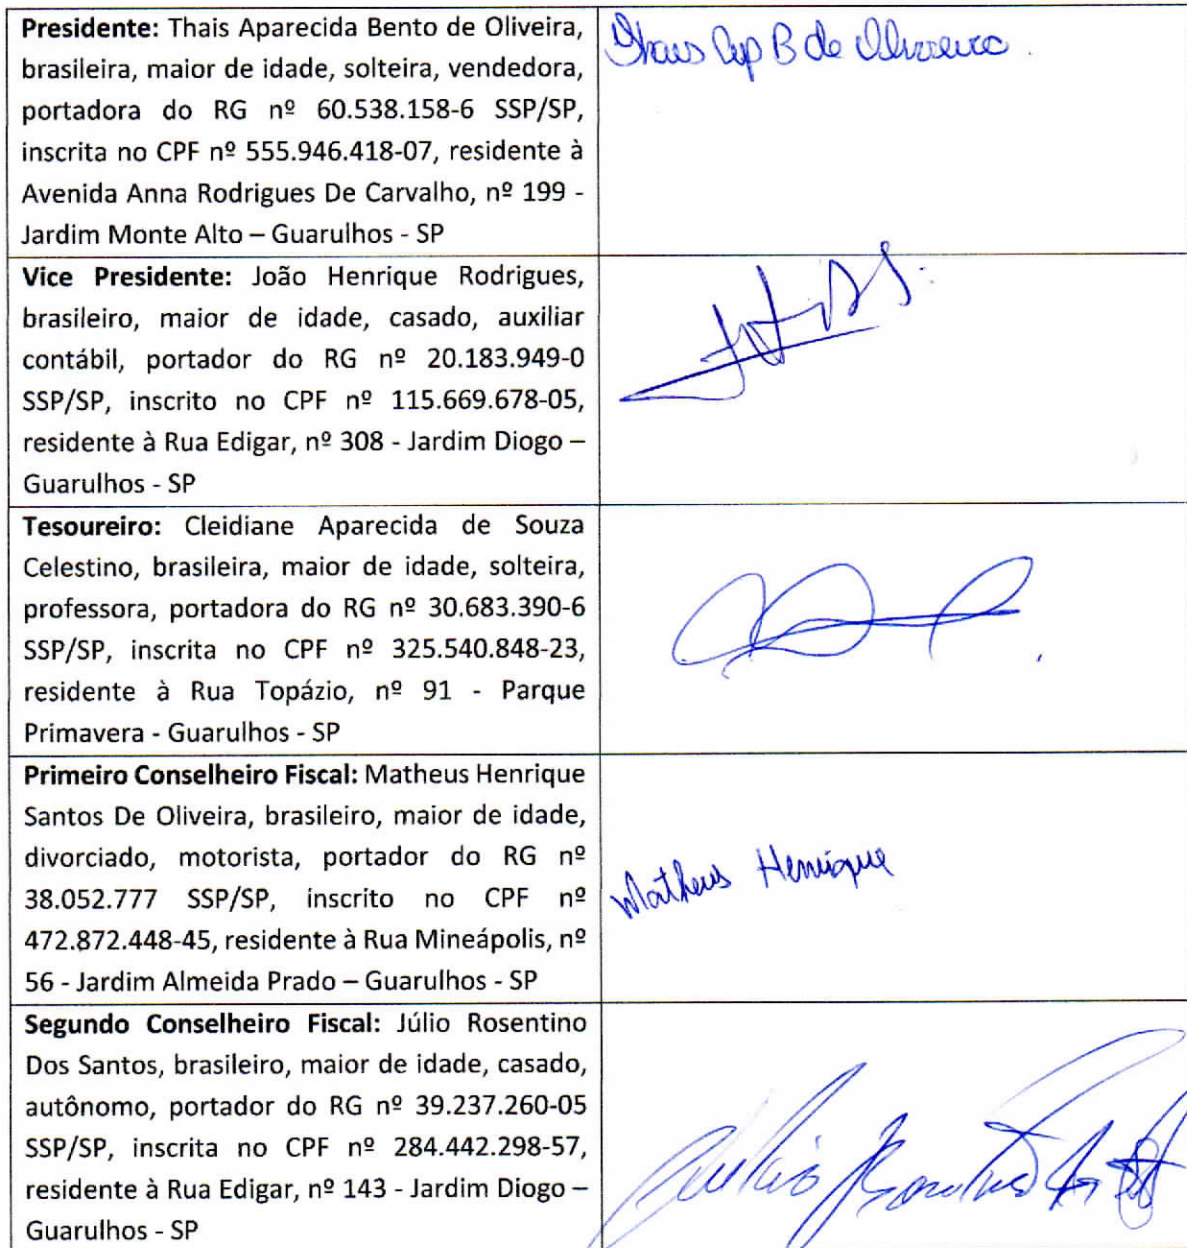 Presidente: Thais Aparecida Bento de Oliveira,
brasileira, maior de idade, solteira, vendedora,
portadora do RG nº 60.538.158-6 SSP/SP,
inscrita no CPF nº 555.946.418-07, residente à
Avenida Anna Rodrigues De Carvalho, nº 199 -
Jardim Monte Alto – Guarulhos - SP
Thais Ap B de Oliveira.
Vice Presidente: João Henrique Rodrigues,
brasileiro, maior de idade, casado, auxiliar
contábil, portador do RG nº 20.183.949-0
SSP/SP, inscrito no CPF nº 115.669.678-05,
residente à Rua Edigar, nº 308 - Jardim Diogo –
Guarulhos - SP
Tesoureiro: Cleidiane Aparecida de Souza
Celestino, brasileira, maior de idade, solteira,
professora, portadora do RG nº 30.683.390-6
SSP/SP, inscrita no CPF nº 325.540.848-23,
residente à Rua Topázio, nº 91 - Parque
Primavera - Guarulhos - SP
Primeiro Conselheiro Fiscal: Matheus Henrique
Santos De Oliveira, brasileiro, maior de idade,
divorciado, motorista, portador do RG nº
38.052.777 SSP/SP, inscrito no CPF nº
472.872.448-45, residente à Rua Mineápolis, nº
56 - Jardim Almeida Prado – Guarulhos - SP
Matheus Henrique
Segundo Conselheiro Fiscal: Júlio Rosentino
Dos Santos, brasileiro, maior de idade, casado,
autônomo, portador do RG nº 39.237.260-05
SSP/SP, inscrita no CPF nº 284.442.298-57,
residente à Rua Edigar, nº 143 - Jardim Diogo –
Guarulhos - SP